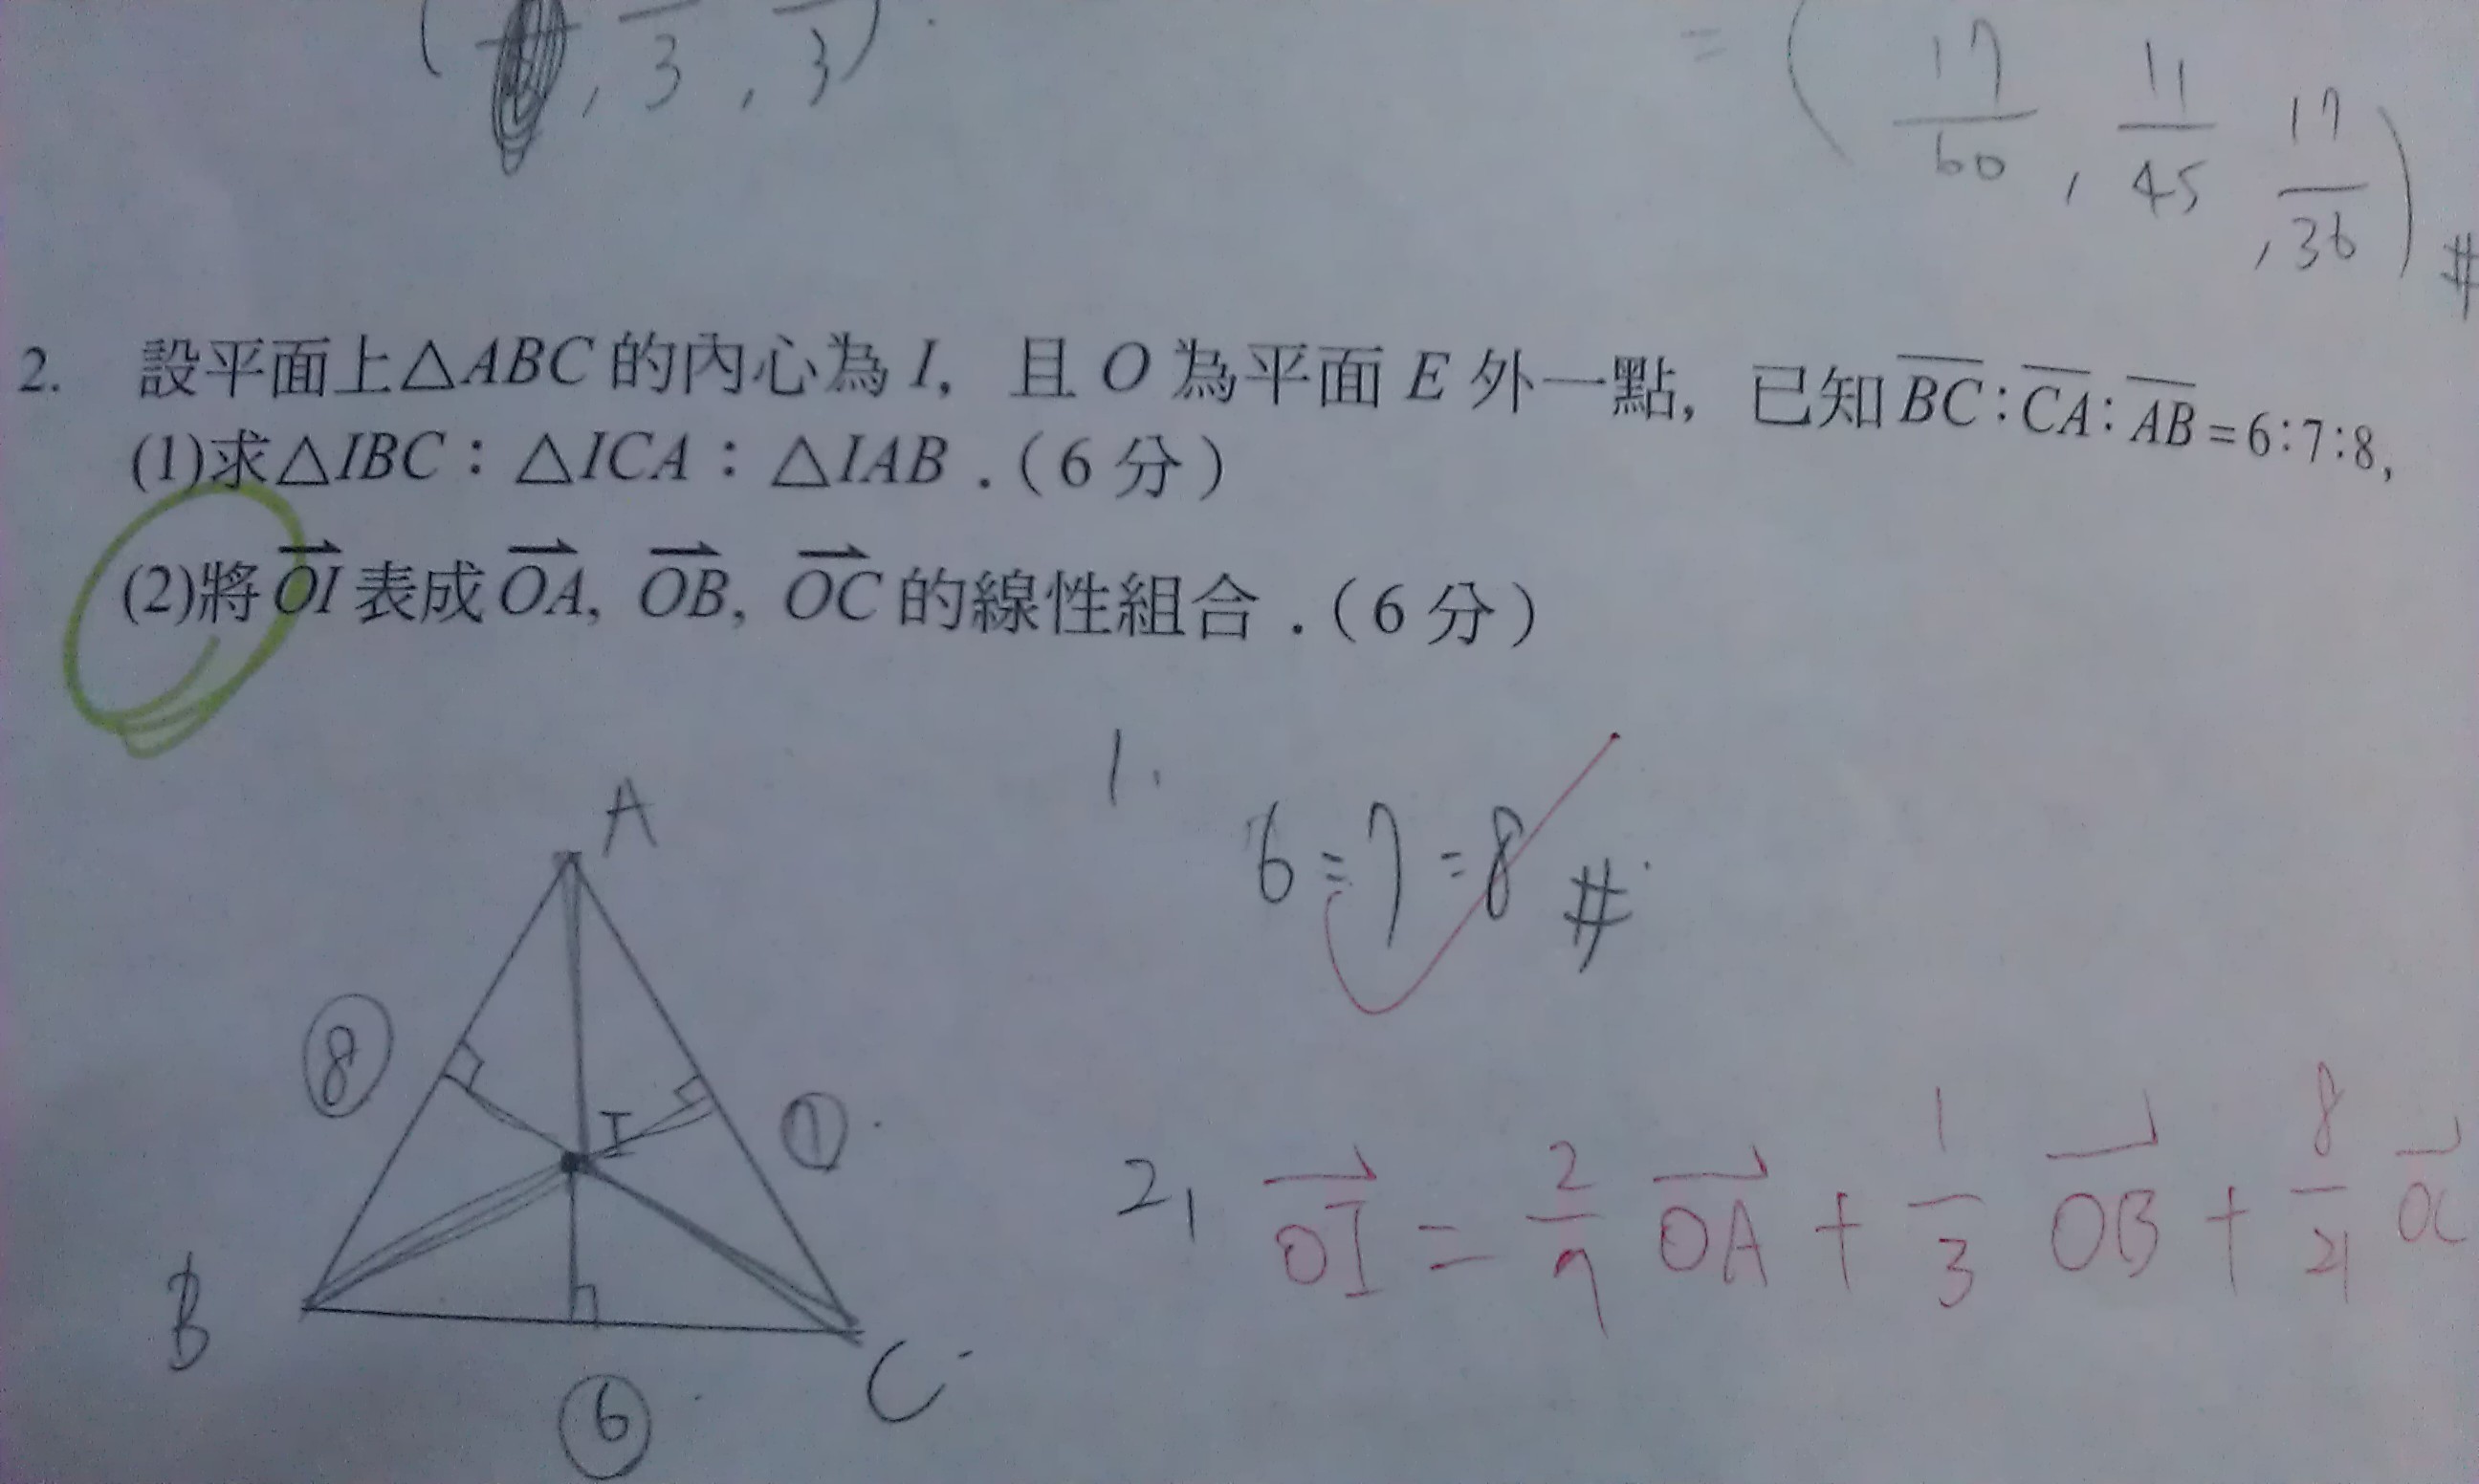 ( , 3 , 3 ) .
= ( 17/60 , 11/45 , 17/36 ) #
2. 設平面上△ABC 的內心為 I, 且 O 為平面 E 外一點, 已知 BC:CA:AB=6:7:8,
(1)求△IBC:△ICA:△IAB.(6 分)
(2)將 OI 表成 OA, OB, OC 的線性組合.(6 分)
1.
6:7:8 #
A
8
I
7
B
C
6
2, OI = 2/7 OA + 1/3 OB + 8/21 OC